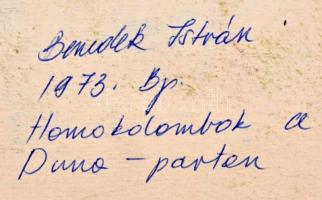 Benedek István
1973. Bp
Homokdombok a
Duna - parton